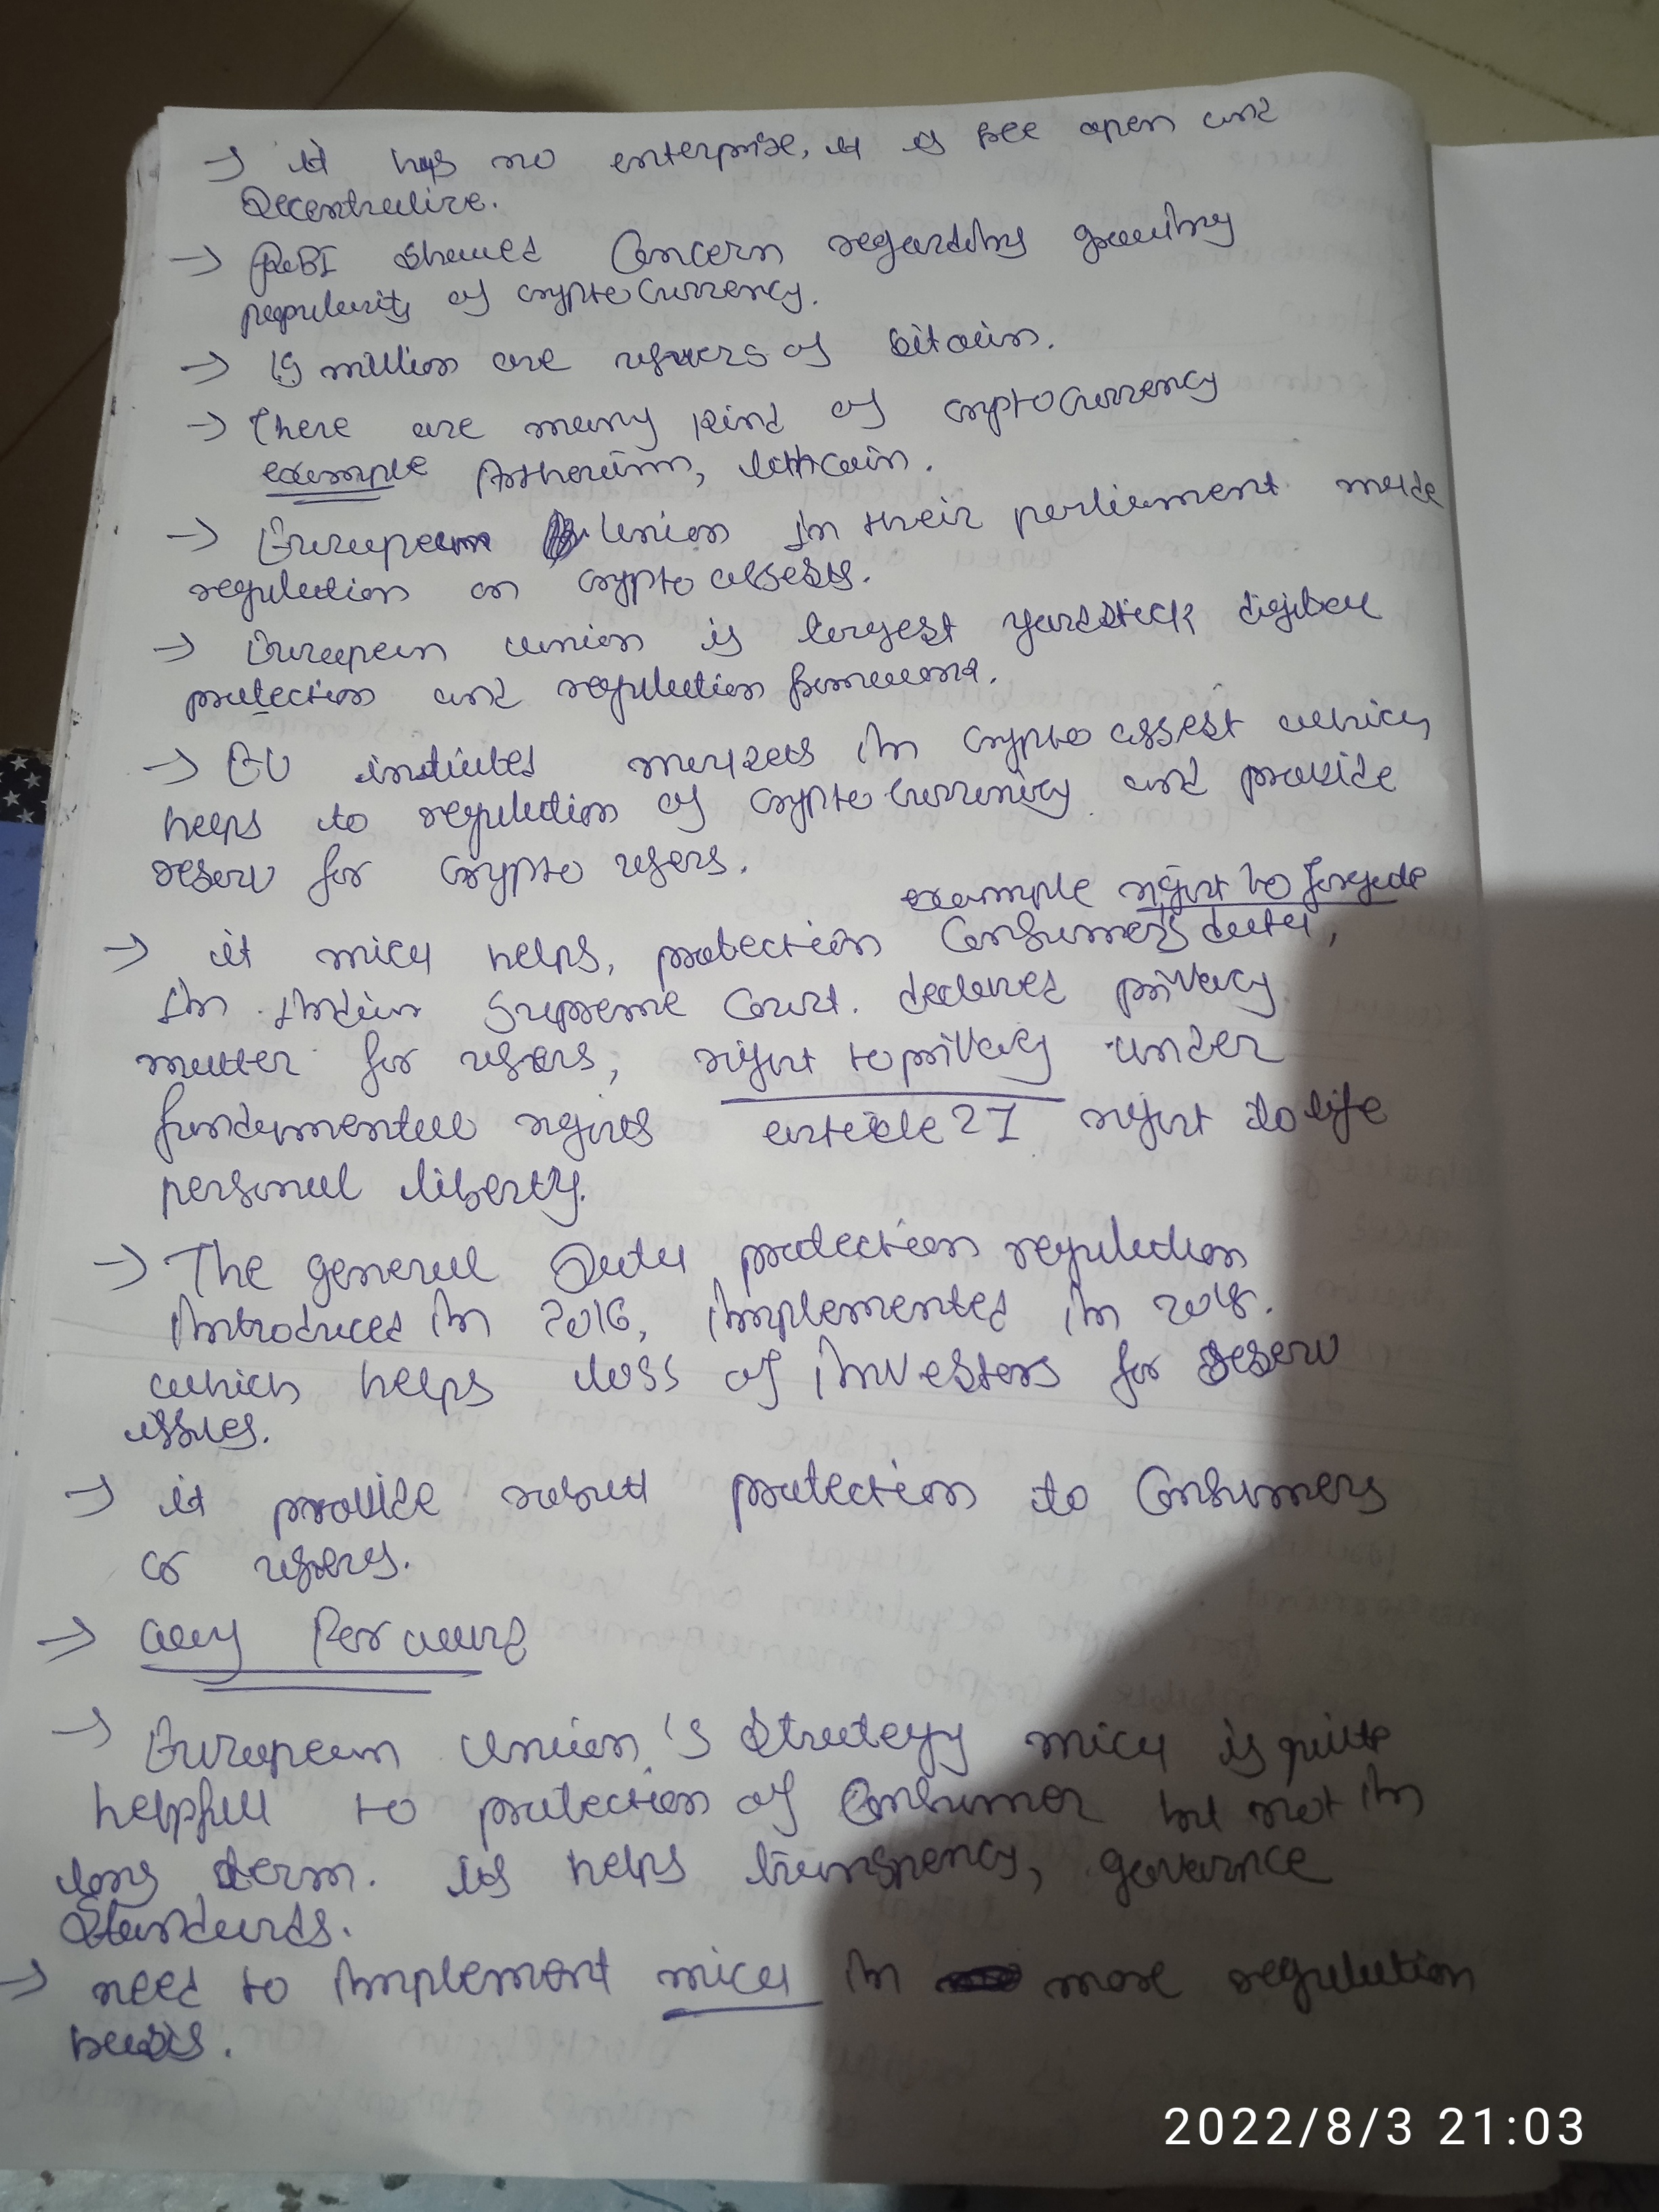 → it has no enterprise, it is free open and
Decentralize.
→ RBI showed Concern regarding growing
popularity of cryptocurrency.
→ 19 million are users of bitcoin.
→ There are many kind of cryptocurrency
example litcoin.
→ European Union in their parliament made
regulation on crypto assests.
→ European union is largest yardstick digital
protection and regulation
→ EU markets in crypto assest which
helps to regulation of cryptocurrency and provide
for crypto users.
example right to
→ it mica helps, protection Consumers data,
In Indian Supreme Court. declared privacy
matter for users, right to privacy under
fundamental rights article 21 right to life
personal liberty.
→ The general Data protection regulation
Introduced in 2016, implemented in 2018.
which helps loss of investors for
issues.
→ it provide robust protection to Consumers
or users.
→ way Forward
→ European Union's Strategy mica is quite
helpfull to protection of Consumer but not in
long term. its helps transpency, governce
Standards.
→ need to implement mica in more regulation
basis.
2022/8/3 21:03